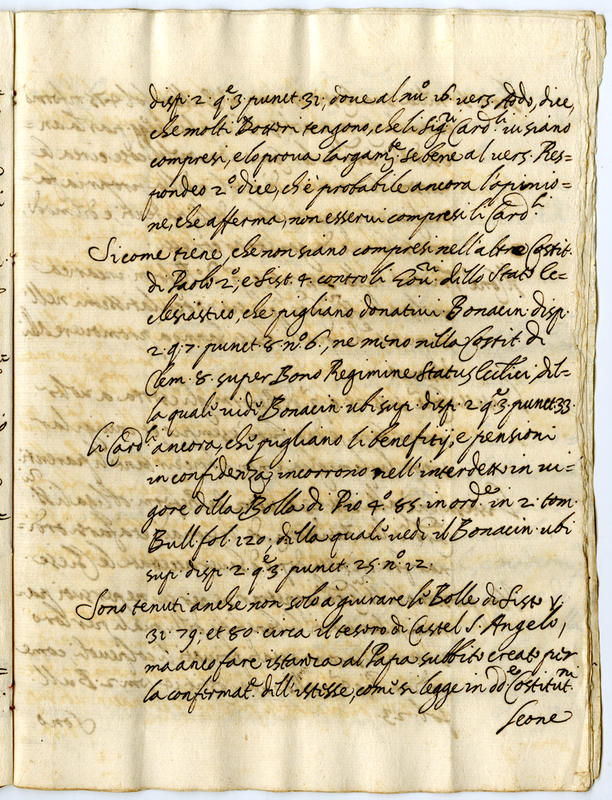 disp. 2. q.e 3. punct. 31, doue al nu.o 16. vers. Addo, dice,
che molti Dottori tengono, che li Sig.ri Card.li ui siano
compresi, e lo proua largam.te, se bene al vers. Res=
pondeo 2.o dice, ch'è probabile ancora l'opinio=
ne, che afferma, non esserui compresi li Card.li
Si come tiene, che non siano compresi nell'altre Costit.
di Paolo 2.o, e Sist. 4. contro li Gou.ri dello Stato Ec=
clesiastico, che pigliano donatiui. Bonacin. disp.
2. q. 7. punct. 8. n.o 6., ne meno nella Costit. di
Clem. 8. super Bono Regimine Status Eccl.ici, del=
la quale uedi Bonacin. ubi sup. disp. 2. q.e 3. punct. 33.
li Card.li ancora, che pigliano li benefitij, e pensioni
in confidenza, incorrono nell'interdetto in ui=
gore della Bolla di Pio 4.o 85. in ord.e in 2. tom.
Bull. fol. 120, della quale uedi il Bonacin. ubi
sup. disp. 2. q.e 3. punct. 25. n.o 12.
Sono tenuti anche non solo a giurare le Bolle di Sisto V.
31. 79, et 80. circa il tesoro di Castel S. Angelo,
mà anco fare istanza al Papa subbito creato per
la confermat.e dell'istesse, come si legge in d.e Costitut.ni
Leone